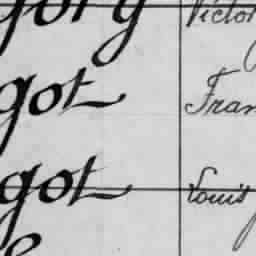 gory Victor
got Fran
got Louis